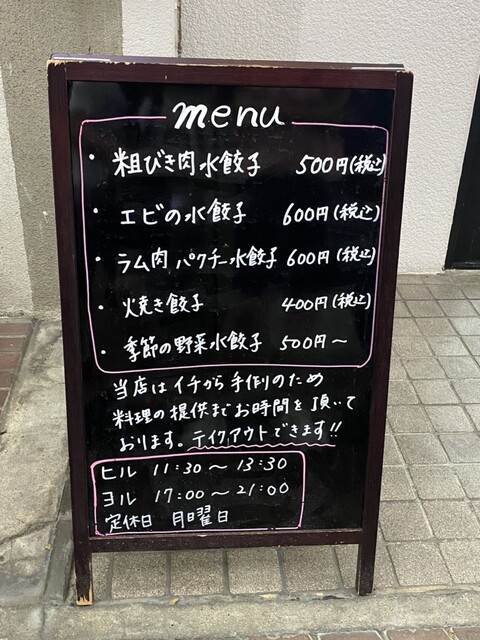 menu
・粗びき肉水餃子 500円(税込)
・エビの水餃子 600円(税込)
・ラム肉パクチー水餃子 600円(税込)
・焼き餃子 400円(税込)
・季節の野菜水餃子 500円～
当店はイチから手作りのため
料理の提供までお時間を頂いて
おります。テイクアウトできます!!
ヒル 11:30～13:30
ヨル 17:00～21:00
定休日 月曜日